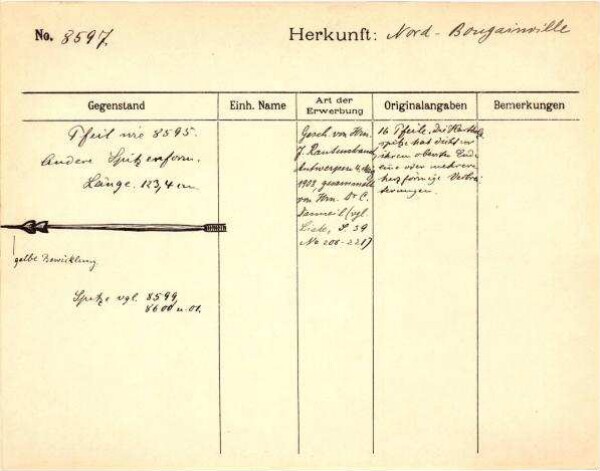 No. 8597.
Herkunft: Nord-Bougainville
Gegenstand
Einh. Name
Art der Erwerbung
Originalangaben
Bemerkungen
Pfeil wie 8595.
Andere Spitzenform.
Länge. 123,4 cm
gelbe Bewicklung
Spitze vgl. 8599,
8600 u. 01.
Gesch. von Hrn.
J. Rautenstrauch,
Antwerpen
1903, gesammelt
von Hrn. Dr. C.
(vgl.
Liste, S. 39
No 206-221)
16 Pfeile, die Hartholz-
spitze hat dicht vor
ihrem obersten Ende
eine oder mehrere
herzförmige Verbrei-
terungen.